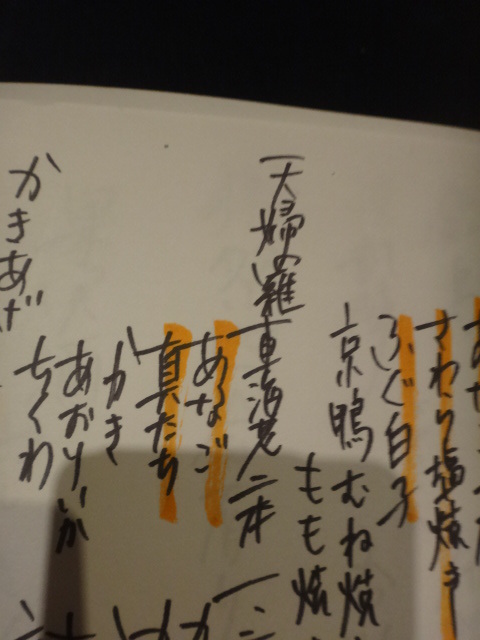 さわら塩焼き
ふぐ白子
京鴨むね焼
もも焼
天婦羅 車海老 二本
あなご
真たち
かき
あおりいか
ちくわ
かきあげ